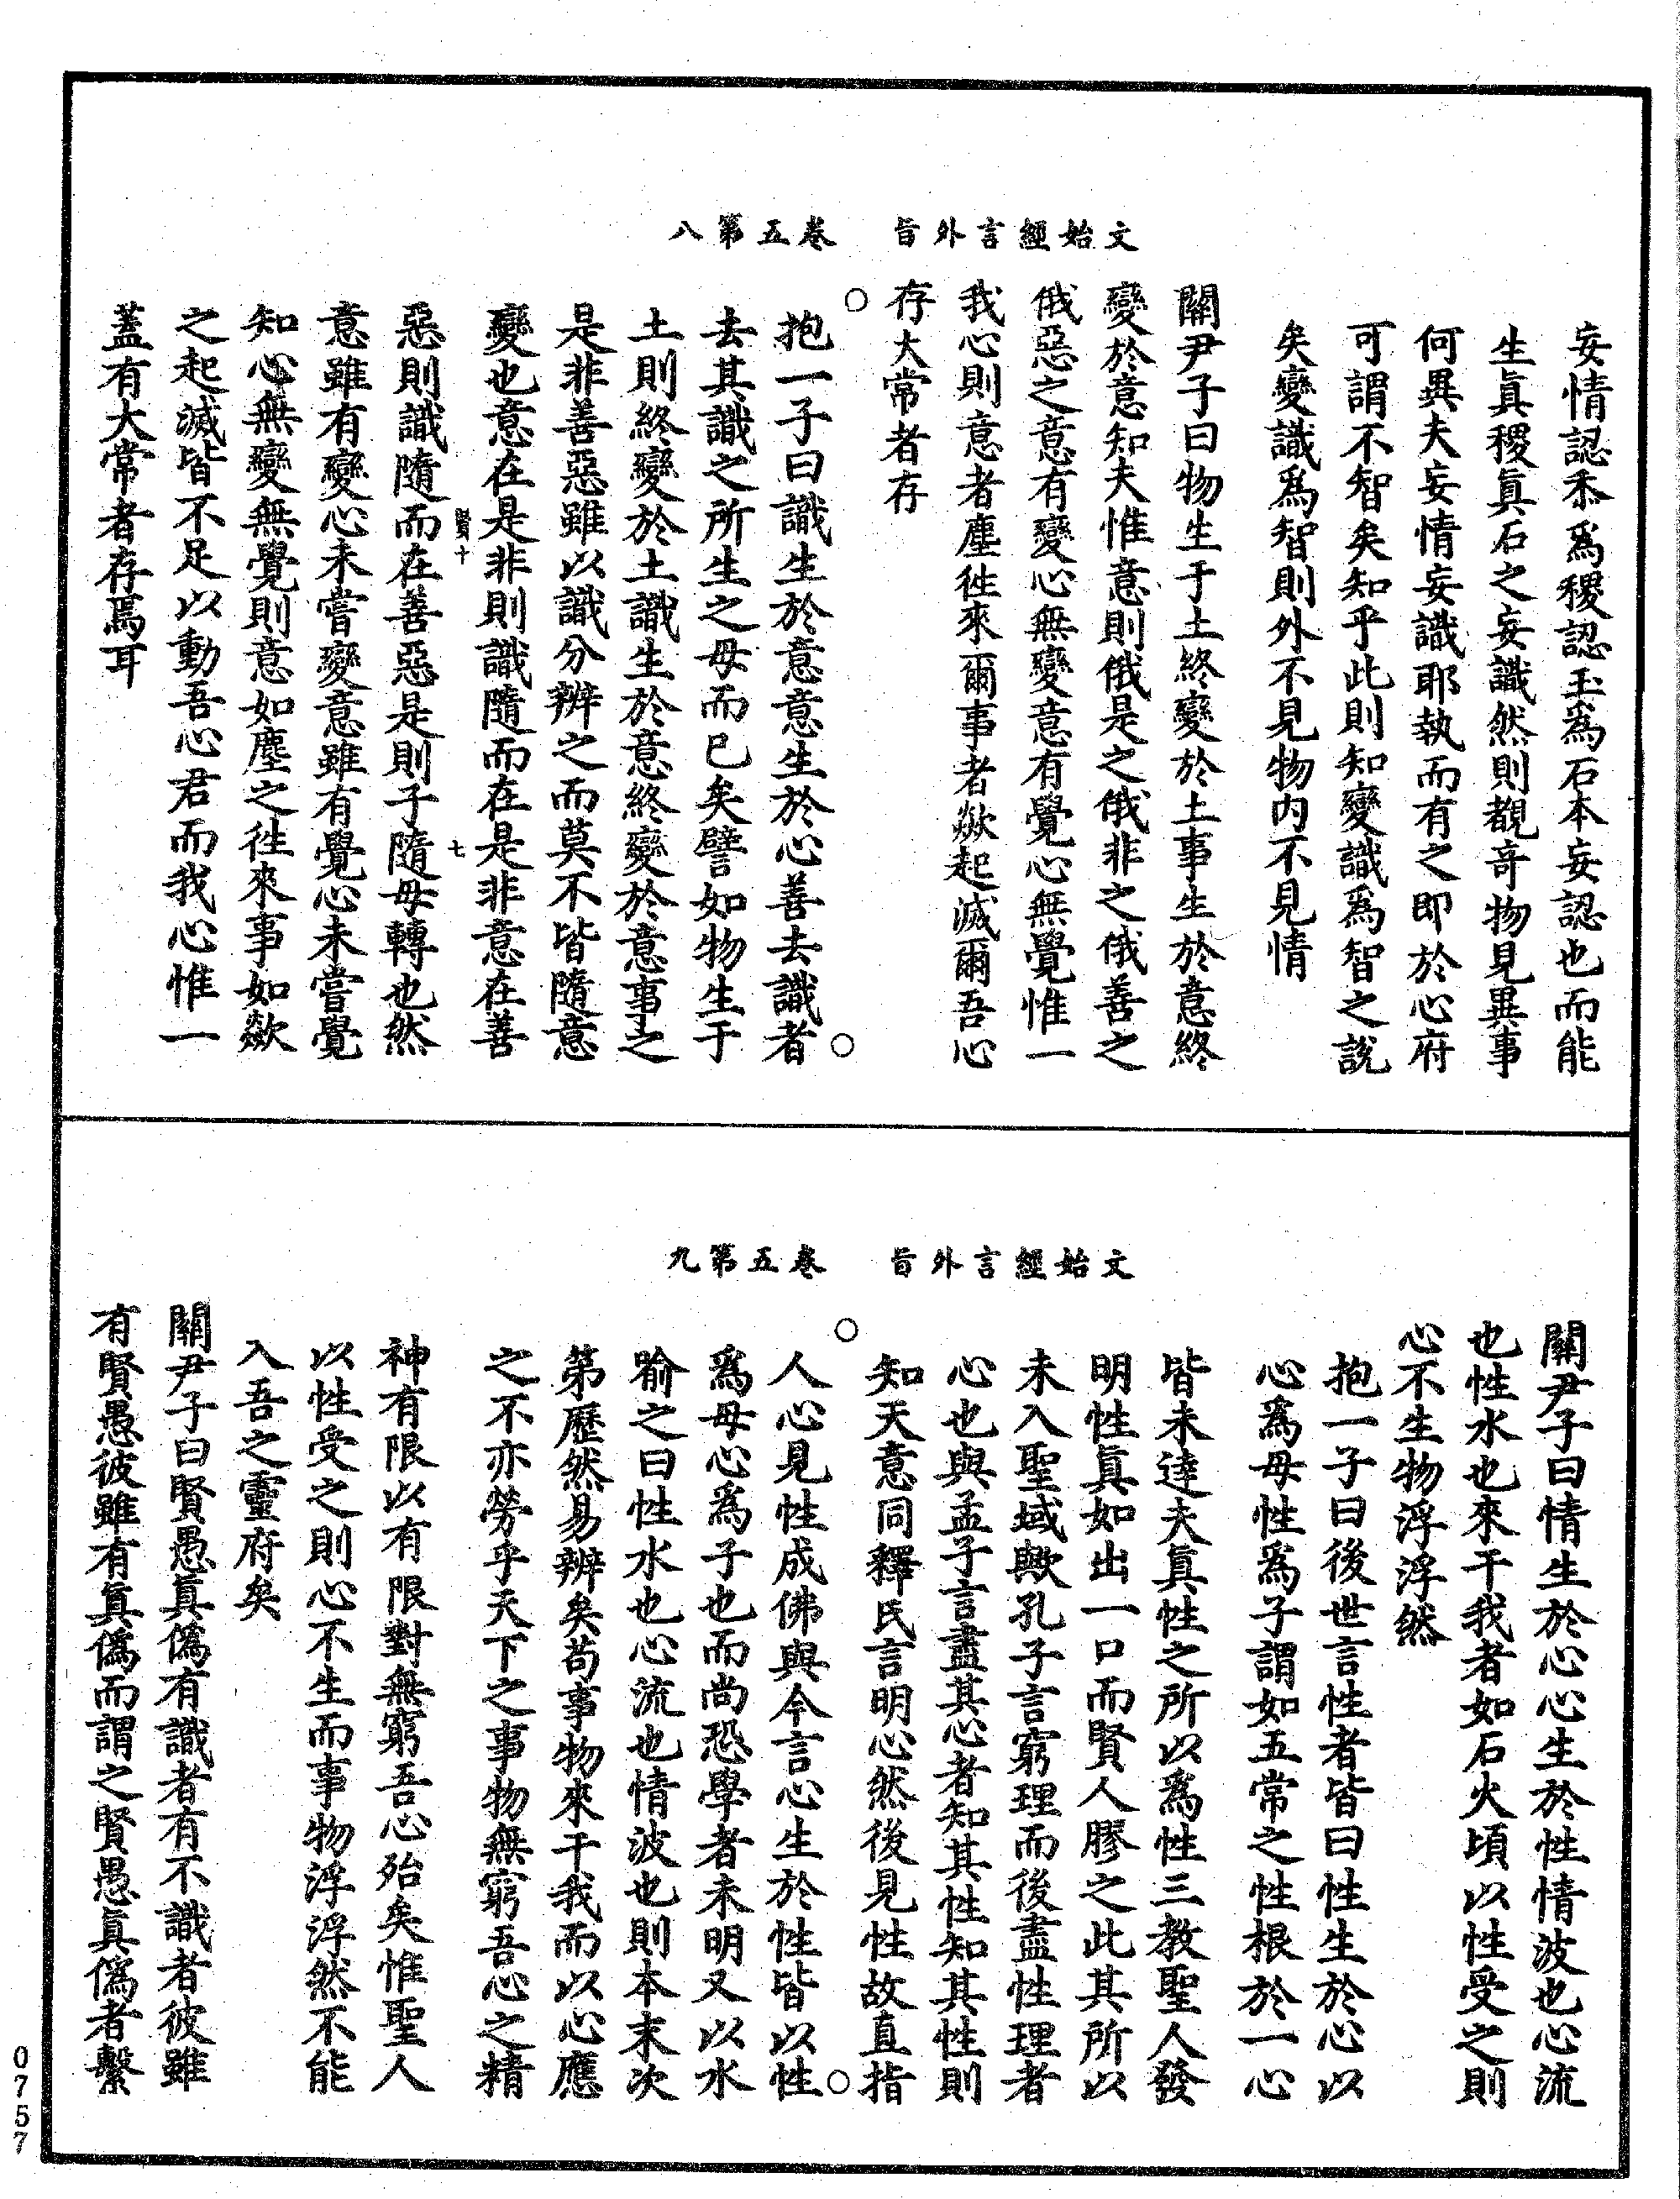 文始經言外旨　卷五第八
妄情認黍爲稷認玉爲石本妄認也而能
生眞稷眞石之妄識然則覩竒物見異事
何異夫妄情妄識耶執而有之即於心府
可謂不智矣知乎此則知變識爲智之説
矣變識爲智則外不見物内不見情
關尹子曰物生于土終變於土事生於意終
變於意知夫惟意則俄是之俄非之俄善之
俄惡之意有變心無變意有覺心無覺惟一
我心則意者塵徃來爾事者歘起滅爾吾心
存大常者存
○
抱一子曰識生於意意生於心善去識者
○
去其識之所生之母而已矣譬如物生于
土則終變於土識生於意終變於意事之
是非善惡雖以識分辨之而莫不皆隨意
變也意在是非則識隨而在是非意在善
賢十　七
惡則識隨而在善惡是則子隨母轉也然
意雖有變心未嘗變意雖有覺心未嘗覺
知心無變無覺則意如塵之徃來事如歘
之起滅皆不足以動吾心君而我心惟一
蓋有大常者存焉耳
文始經言外旨　卷五第九
關尹子曰情生於心心生於性情波也心流
也性水也來干我者如石火頃以性受之則
心不生物浮浮然
抱一子曰後世言性者皆曰性生於心以
心爲母性爲子謂如五常之性根於一心
皆未逹夫眞性之所以爲性三教聖人發
明性眞如出一口而賢人膠之此其所以
未入聖域歟孔子言窮理而後盡性理者
心也與孟子言盡其心者知其性知其性則
知天意同釋氏言明心然後見性故直指
○
人心見性成佛與今言心生於性皆以性
○
爲母心爲子也而尚恐學者未明又以水
喻之曰性水也心流也情波也則本末次
第歷然易辨矣苟事物來干我而以心應
之不亦勞乎天下之事物無窮吾心之精
神有限以有限對無窮吾心殆矣惟聖人
以性受之則心不生而事物浮浮然不能
入吾之靈府矣
關尹子曰賢愚眞僞有識者有不識者彼雖
有賢愚彼雖有眞僞而謂之賢愚眞僞者繫
0757